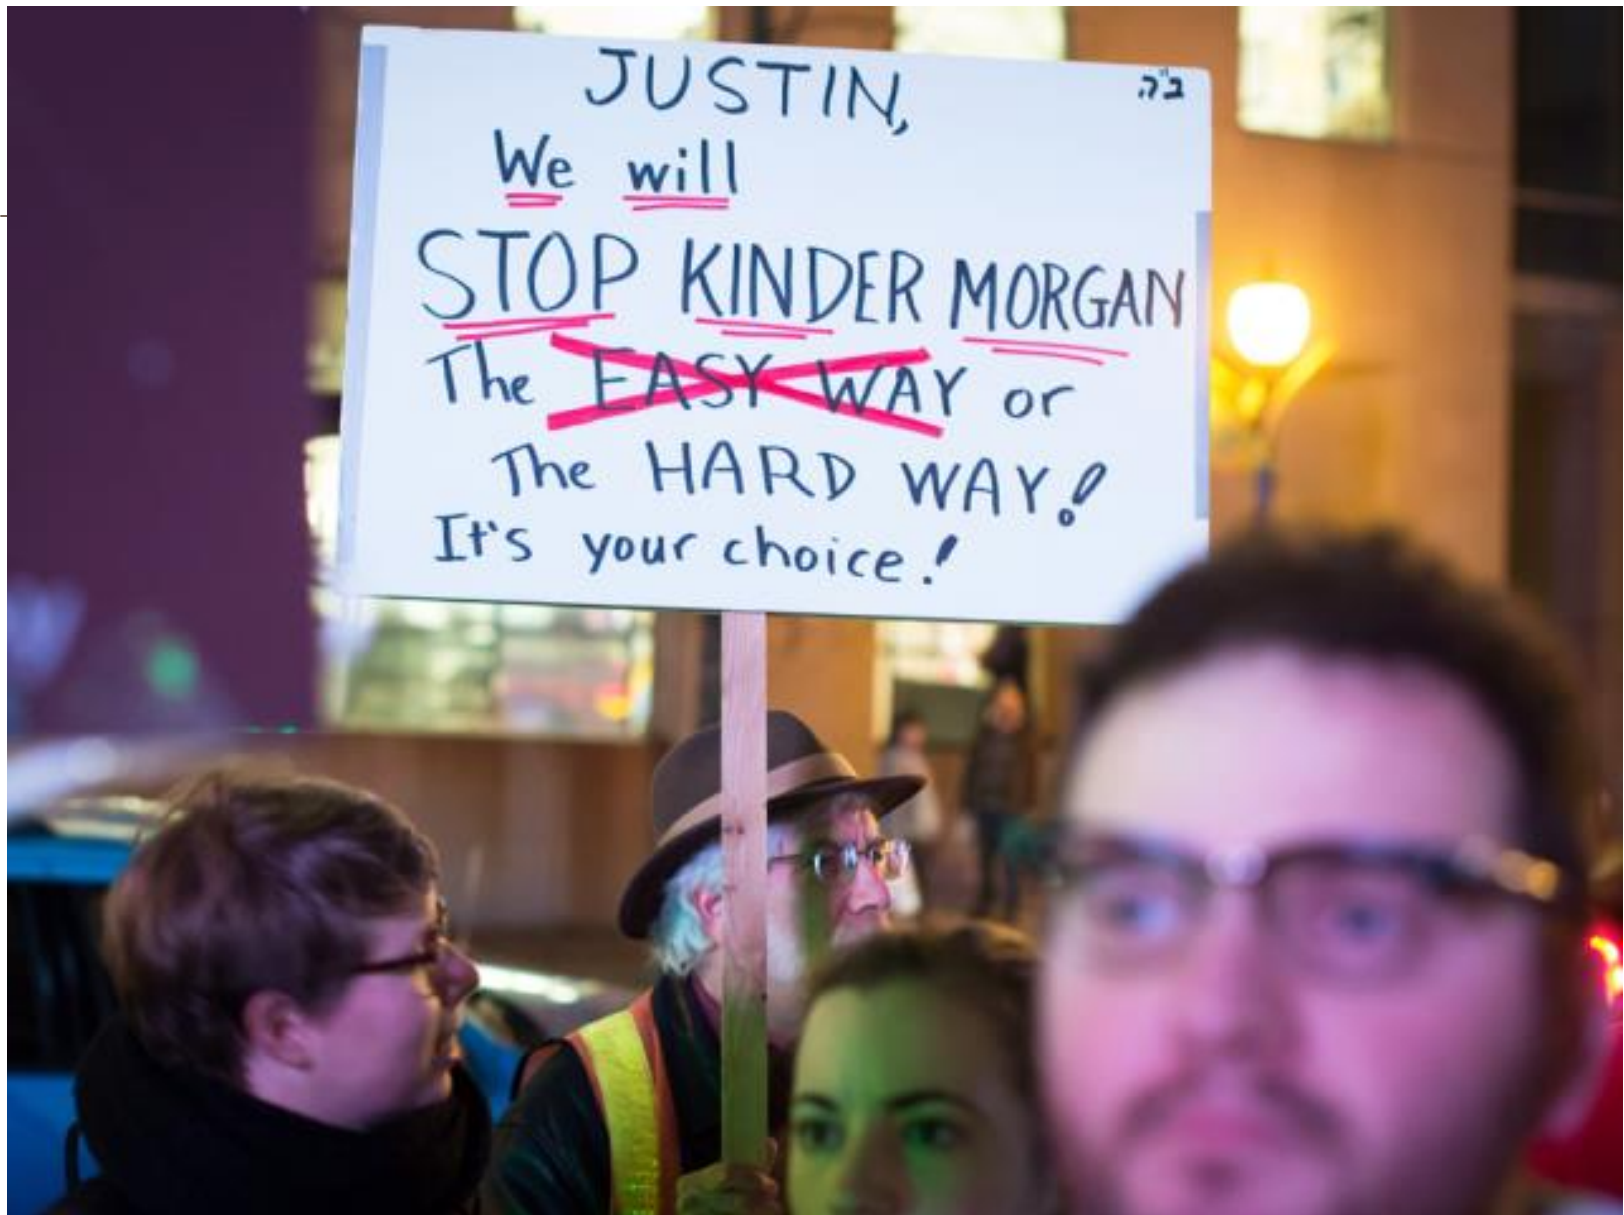 ב"ה
JUSTIN,
We will
STOP KINDER MORGAN
The EASY WAY or
The HARD WAY!
It's your choice!